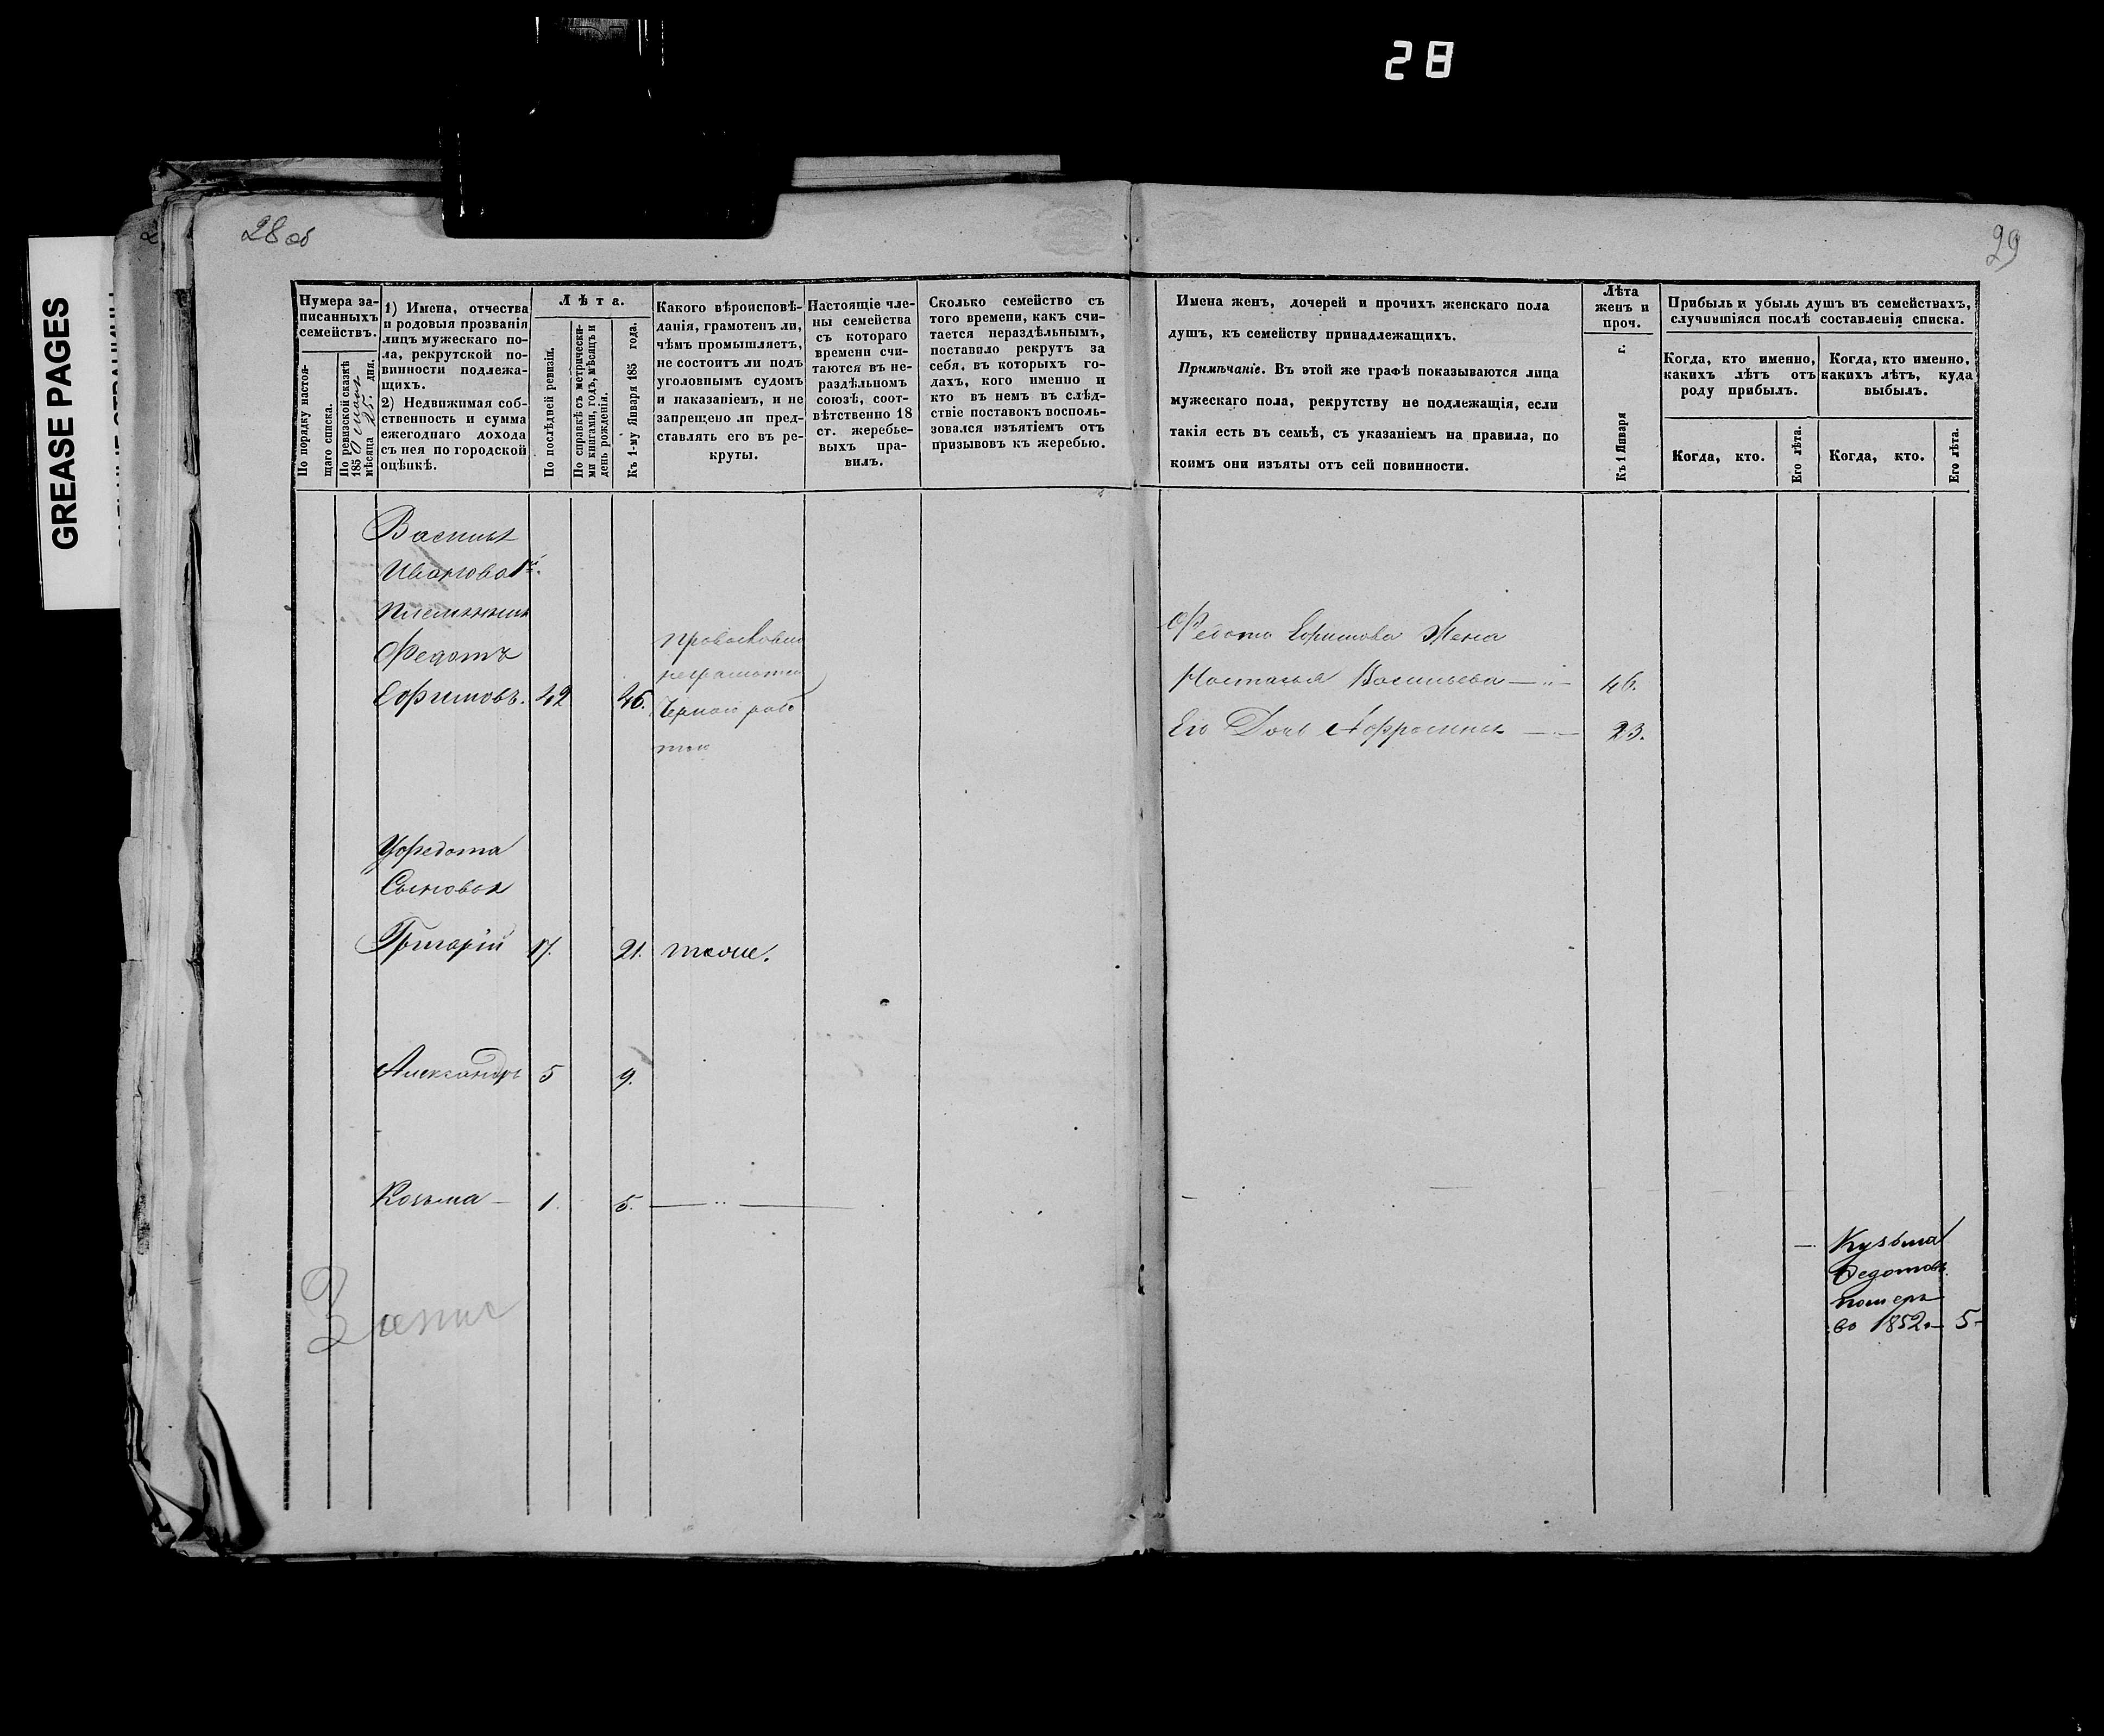 28
GREASE PAGES
28 об
29
Нумера за-
писанныхъ
семействъ.
По порядку настоя-
щаго списка.
По ревизской сказкѣ
1850
мѣсяца 25. дня.
1) Имена, отчества
и родовыя прозванія
лицъ мужескаго по-
ла, рекрутской по-
винности подлежа-
щихъ.
2) Недвижимая соб-
ственность и сумма
ежегоднаго дохода
съ нея по городской
оцѣнкѣ.
Лѣта.
По послѣдней ревизіи.
По справкѣ съ метрически-
ми книгами, годъ, мѣсяцъ и
день рожденія.
Къ 1-му Января 185 года.
Какого вѣроисповѣ-
данія, грамотенъ ли,
чѣмъ промышляетъ,
не состоитъ ли подъ
уголовнымъ судомъ
и наказаніемъ, и не
запрещено ли пред-
ставлять его въ ре-
круты.
Настоящіе чле-
ны семейства
съ котораго
времени счи-
таются въ не-
раздѣльномъ
союзѣ, соот-
вѣтственно 18
ст. жеребье-
выхъ пра-
вилъ.
Сколько семейство съ
того времени, какъ счи-
тается нераздѣльнымъ,
поставило рекрутъ за
себя, въ которыхъ го-
дахъ, кого именно и
кто въ немъ въ слѣд-
ствіе поставокъ восполь-
зовался изъятіемъ отъ
призывовъ къ жеребью.
Имена женъ, дочерей и прочихъ женскаго пола
душъ, къ семейству принадлежащихъ.
Примѣчаніе. Въ этой же графѣ показываются лица
мужескаго пола, рекрутству не подлежащія, если
такія есть въ семьѣ, съ указаніемъ на правила, по
коимъ они изъяты отъ сей повинности.
Лѣта
женъ и
проч.
Къ 1 Января г.
Прибыль и убыль душъ въ семействахъ,
случившіяся послѣ составленія списка.
Когда, кто именно,
какихъ лѣтъ отъ
роду прибылъ.
Когда, кто именно,
какихъ лѣтъ, куда
выбылъ.
Когда, кто.
Его лѣта.
Когда, кто.
Его лѣта.
Василья
Иванова 1й.
племянникъ
Федотъ
Ефимовъ. 42 46.
Православнаго
неграмотенъ
Черной рабо
той
Федота Ефимова Жена
Настасья Васильева — 46.
Его Дочь Афросинья — 23.
У федота
Сыновья
Григорій 17. 21. тоже.
Александръ 5 9.
Козьма — 1. 5.
Кузьма
Федотовъ
померъ
во 1852 — 5 –